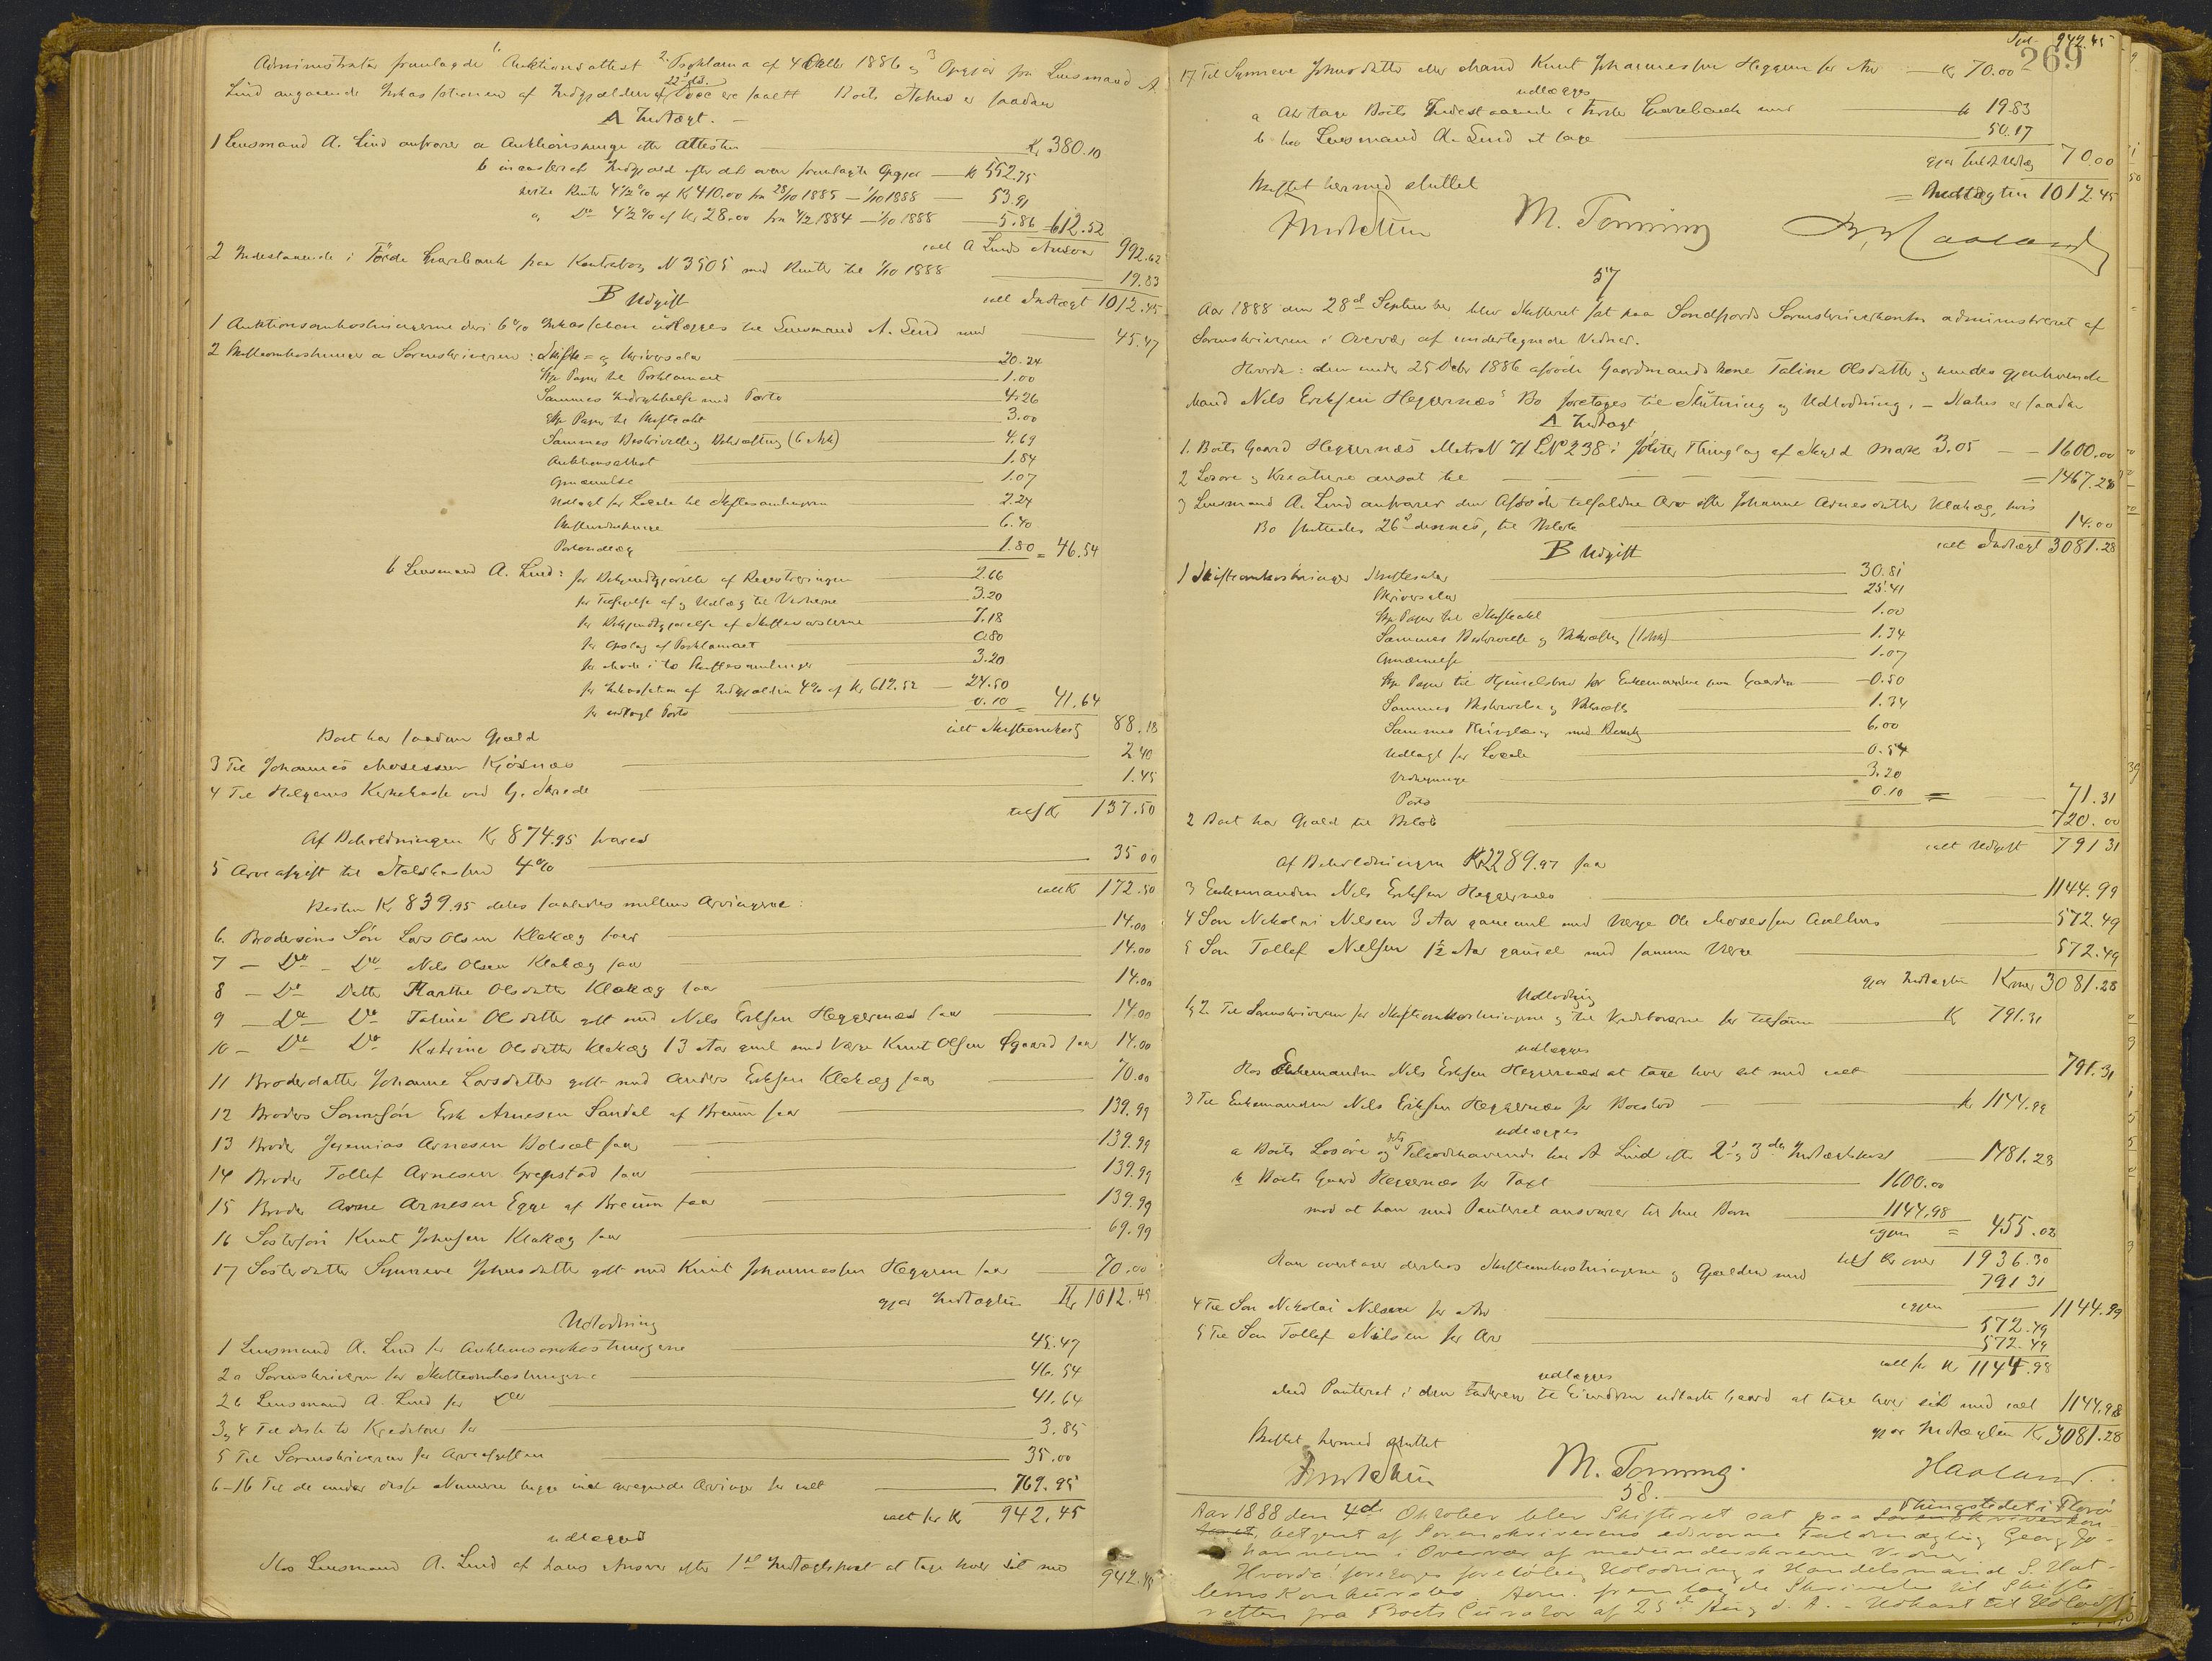 Administrator fremlagde 1. Auktionsattest 2. Proklama af 4 Oktbr 1886 og 3 Opgjør fra Lensmand A
Lind angaaende Inkassationen af Indgjælden af 22 ds. Boets Status er saadan
A Indtægt. -
1 Lensmand A. Lind ansvarer a Auktionspenge efter Attesten Kr 380.10
b incasseret Indgjæld efter det oven fremlagte Opgjør Kr 552.75
hertil Renter 4½ % af Kr 410.00 fra 28/10 1885 - 1/10 1888 53.91
og Do 4½ % af Kr 28.00 fra 4/2 1884 - 1/10 1888 5.86 612.52
ialt A Linds Ansvar 992.62
2 Indestaaende i Førde Sparebank paa Kontrabog N 3505 med Renter til 1/10 1888 19.83
B Udgift ialt Indtægt 1012.45
1 Auktionsomkostningerne deri 6 % Inkassation udlægges til Lensmand A. Lind med 45.47
2 Skifteomkostninger a Sorenskriveren: Skifte- og Skriversalar 20.24
Stp Papir til Proklamaet 1.00
Sammes Indrykkelse med Porto 4.26
Stp Papir til Skifteakt 3.00
Sammes Beskrivelse og Bekræftning (6 Ark) 4.69
Auktionsattest 1.84
Opnævnelse 1.07
Udlagt for Locale til Skiftesamlingerne 2.24
6.40
Portoudlæg 1.80 = 46.54
b Lensmand A. Lind: for Bekjendtgjørelse af Registreringen 2.66
for Tilsigelse af og Udlæg til Vidnerne 3.20
for Bekjendtgjørelse af Skiftevarslerne 7.18
for Opslag af Proklamaet 0.80
for Møde i to Skiftesamlinger 3.20
for Inkassation af Indgjælden 4 % af Kr 612.52 24.50
for udlagt Porto 0.10 = 41.64
ialt Skifteomkostg 88.18
Boet har saadan Gjæld
3 Til Johannes Mosessen Kjøsnæs 2.40
4 Til Helgens Kirkekasse ved G. Skrede 1.45
tils Kr 137.50
Af Beholdningen Kr 874.95 svares
5 Arveafgift til Statskassen 4 % 35.00
ialt Kr 172.50
Resten Kr 839.95 deles saaledes mellem Arvingerne:
6. Brodersøns Søn Lars Olsen Klakæg faar 14.00
7 - Do - Do Nils Olsen Klakæg faar 14.00
8 - Do Datter Marthe Olsdatter Klakæg faar 14.00
9 - Do - Do Taline Olsdatter gift med Nils Eriksen Heggernæs faar 14.00
10 - Do Do Katrine Olsdatter Klakæg 13 Aar gml med Værge Knut Olsen Øgaard faar 14.00
11 Broderdatter Johanne Larsdatter gift med Anders Eriksen Klakæg faar 70.00
12 Broders Sønnesøn Erik Arnesen Sandal af Breum faar 139.99
13 Broder Jeremias Arnesen Bolsæt faar 139.99
14 Broder Tollef Arnesen Grepstad faar 139.99
15 Broder Arne Arnesen Egge af Breum faar 139.99
16 Søstersøn Knut Johnsen Klakæg faar 69.99
17 Søsterdatter Synneve Johnsdatter gift med Knut Johannessen Heggem faar 70.00
gjør Indtægten Kr 1012.45
Udlodning
1 Lensmand A. Lind for Auktionsomkostningerne 45.47
2a Sorenskriveren for Skifteomkostningerne 46.54
2b Lensmand A. Lind for Do 41.64
3 og 4 Til disse to Kreditorer for 3.85
5 Til Sorenskriveren for Arveafgiften 35.00
6-16 Til de under disse Numere begge incl anregnede Arvinger for ialt 769.95
ialt for Kr 942.45
udlægges
Hos Lensmand A. Lind af hans Ansvar efter 1ste Indtægtspost at tage hver sit med 942.45
269
942.45
17 Til Synneve Johnsdatter eller Mand Knut Johannessen Heggem for Arv Kr 70.00
udlægges
a At tage Boets Indestaaende i Førde Sparebank med Kr 19.83
b hos Lensmand A. Lind at tage 50.17
gjør 70.00
= Indtægten 1012.45
Skiftet hermed sluttet
M. Tonning
57
Aar 1888 den 28de September blev Skifteret sat paa Søndfjords Sorenskriverkontor administreret af
Sorenskriveren i Overvær af undertegnede Vidner.
Hvorda: den under 25 Octbr 1886 afdøde Gaardmandskone Taline Olsdatter og hendes gjenlevende
Mand Nils Eriksen Heggernæs' Bo foretoges til Slutning og Udlodning. - Status er saadan
A Indtægt
1. Boets Gaard Heggernæs MatrN 71 LNo 238 i Jølster Thinglag af Skyld Mark 3.05 - - 1600.00
2 Løsøre og Kreature ansat til = 1467.28
3 Lensmand A. Lind ansvarer den Afdøde tilfaldne Arv efter Johanne Arnesdatter Klakæg, hvis
Bo sluttedes 26de dennes, til Beløb 14.00
B Udgift ialt Indtægt 3081.28
1 Skifteomkostninger Skiftesalar 30.81
Skriversalar 25.41
Stp Papir til Skifteakt 1.00
Sammes Beskrivelse og Bekræftg (1 Ark) 1.34
Opnævnelse 1.07
Stp Papir til Hjemmelsbrev for Enkemanden paa Gaarden 0.50
Sammes Beskrivelse og Bekræftg 1.34
Sammes Thinglæsg med Bevidn 6.00
Udlagt for Locale 0.54
Vidnepenge 3.20
Porto 0.10 = 71.31
2 Boet har Gjæld til Beløb 720.00
ialt Udgift 791.31
Af Beholdningen Kr 2289.97 faar
3 Enkemanden Nils Eriksen Heggernæs 1144.99
4 Søn Nikolai Nilsen 3 Aar gammel med Værge Ole Mosessen Aardhus 572.49
5 Søn Tollef Nilsen 1½ Aar gammel med samme Værge 572.49
gjør Indtægten Kroner 3081.28
Udlodning
1 og 2 Til Sorenskriveren for Skifteomkostningerne og til Kreditorerne for tilsammen Kr 791.31
udlægges
Hos Enkemanden Nils Eriksen Heggernæs at tage hver sit med ialt 791.31
3 Til Enkemanden Nils Eriksen Heggernæs for Boeslod Kr 1144.99
udlægges
a Boets Løsøre og dets Tilgodehavende hos A Lind efter 2den og 3die Indtægtspost 1481.28
b Boets Gaard Heggernæs for Taxt 1600.00
mod at han med Panteret ansvarer til sine Børn 1144.98
igjen = 455.02
tils Kroner 1936.30
Han overtager derhos Skifteomkostningerne og Gjælden med 791.31
igjen 1144.99
4 Til Søn Nikolai Nilsen for Arv 572.49
5 Til Søn Tollef Nilsen for Arv 572.49
ialt for Kr 1144.98
udlægges
Med Panteret i den Faderen til Eiendom udlagte Gaard at tage hver sit med ialt 1144.98
gjør Indtægten Kr 3081.28
Skiftet hermed sluttet
M. Tonning. Haaland.
58.
Aar 1888 den 4de Oktober blev Skifteret sat paa Thingstedet i Florø
betjent af Sorenskriverens edsvorne Fuldmægtig Georg Jo-
hannesen i Overvær af medunderskrevne Vidner
Hvorda: foretoges foreløbig Udlodning i Handelsmand S. Hat-
lems Konkursbo. Adm. fremlagde Skrivelse til Skifte-
retten fra Boets Curator af 25de Aug d. A. - Udkast til Udlodg